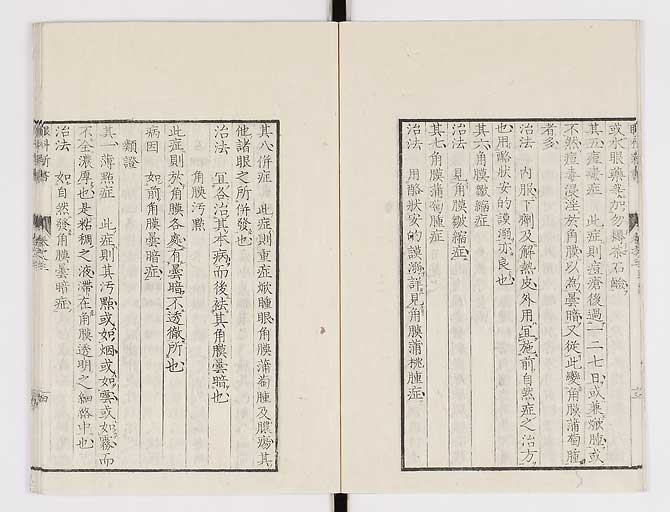 或水眼藥毫加勿樽柴石鹼
其五痘毒症　此症則痘瘡後過一二七日或兼焮腫或
不然痘毒浸淫於角膜以為曇暗又從此變角膜蒲萄腫
者多
治法　內服下劑及解熱皮外用宜施前自然症之治方
也用酪狀安的謨溺亦良也
其六角膜皺縮症
治法　見角膜皺縮症
其七角膜蒲萄腫症
治法　用酪狀安的謨溺詳見角膜蒲桃腫症
其八併症　此症則重症焮腫眼角膜蒲萄腫及膿瘍其
他諸眼之所併發也
治法　宜各治其本病而後袪其角膜曇暗也
角膜汚㸃
此症則於角膜各處有曇暗不透徹所也
病因　如前角膜曇暗症
類證
其一薄點症　此症則其汚㸃或如烟或如雲或如霧而
不全濃厚也是粘稠之液滯在角膜透明之細絡中也
治法　如自然發角膜曇暗症
眼科新書
卷之三
十四